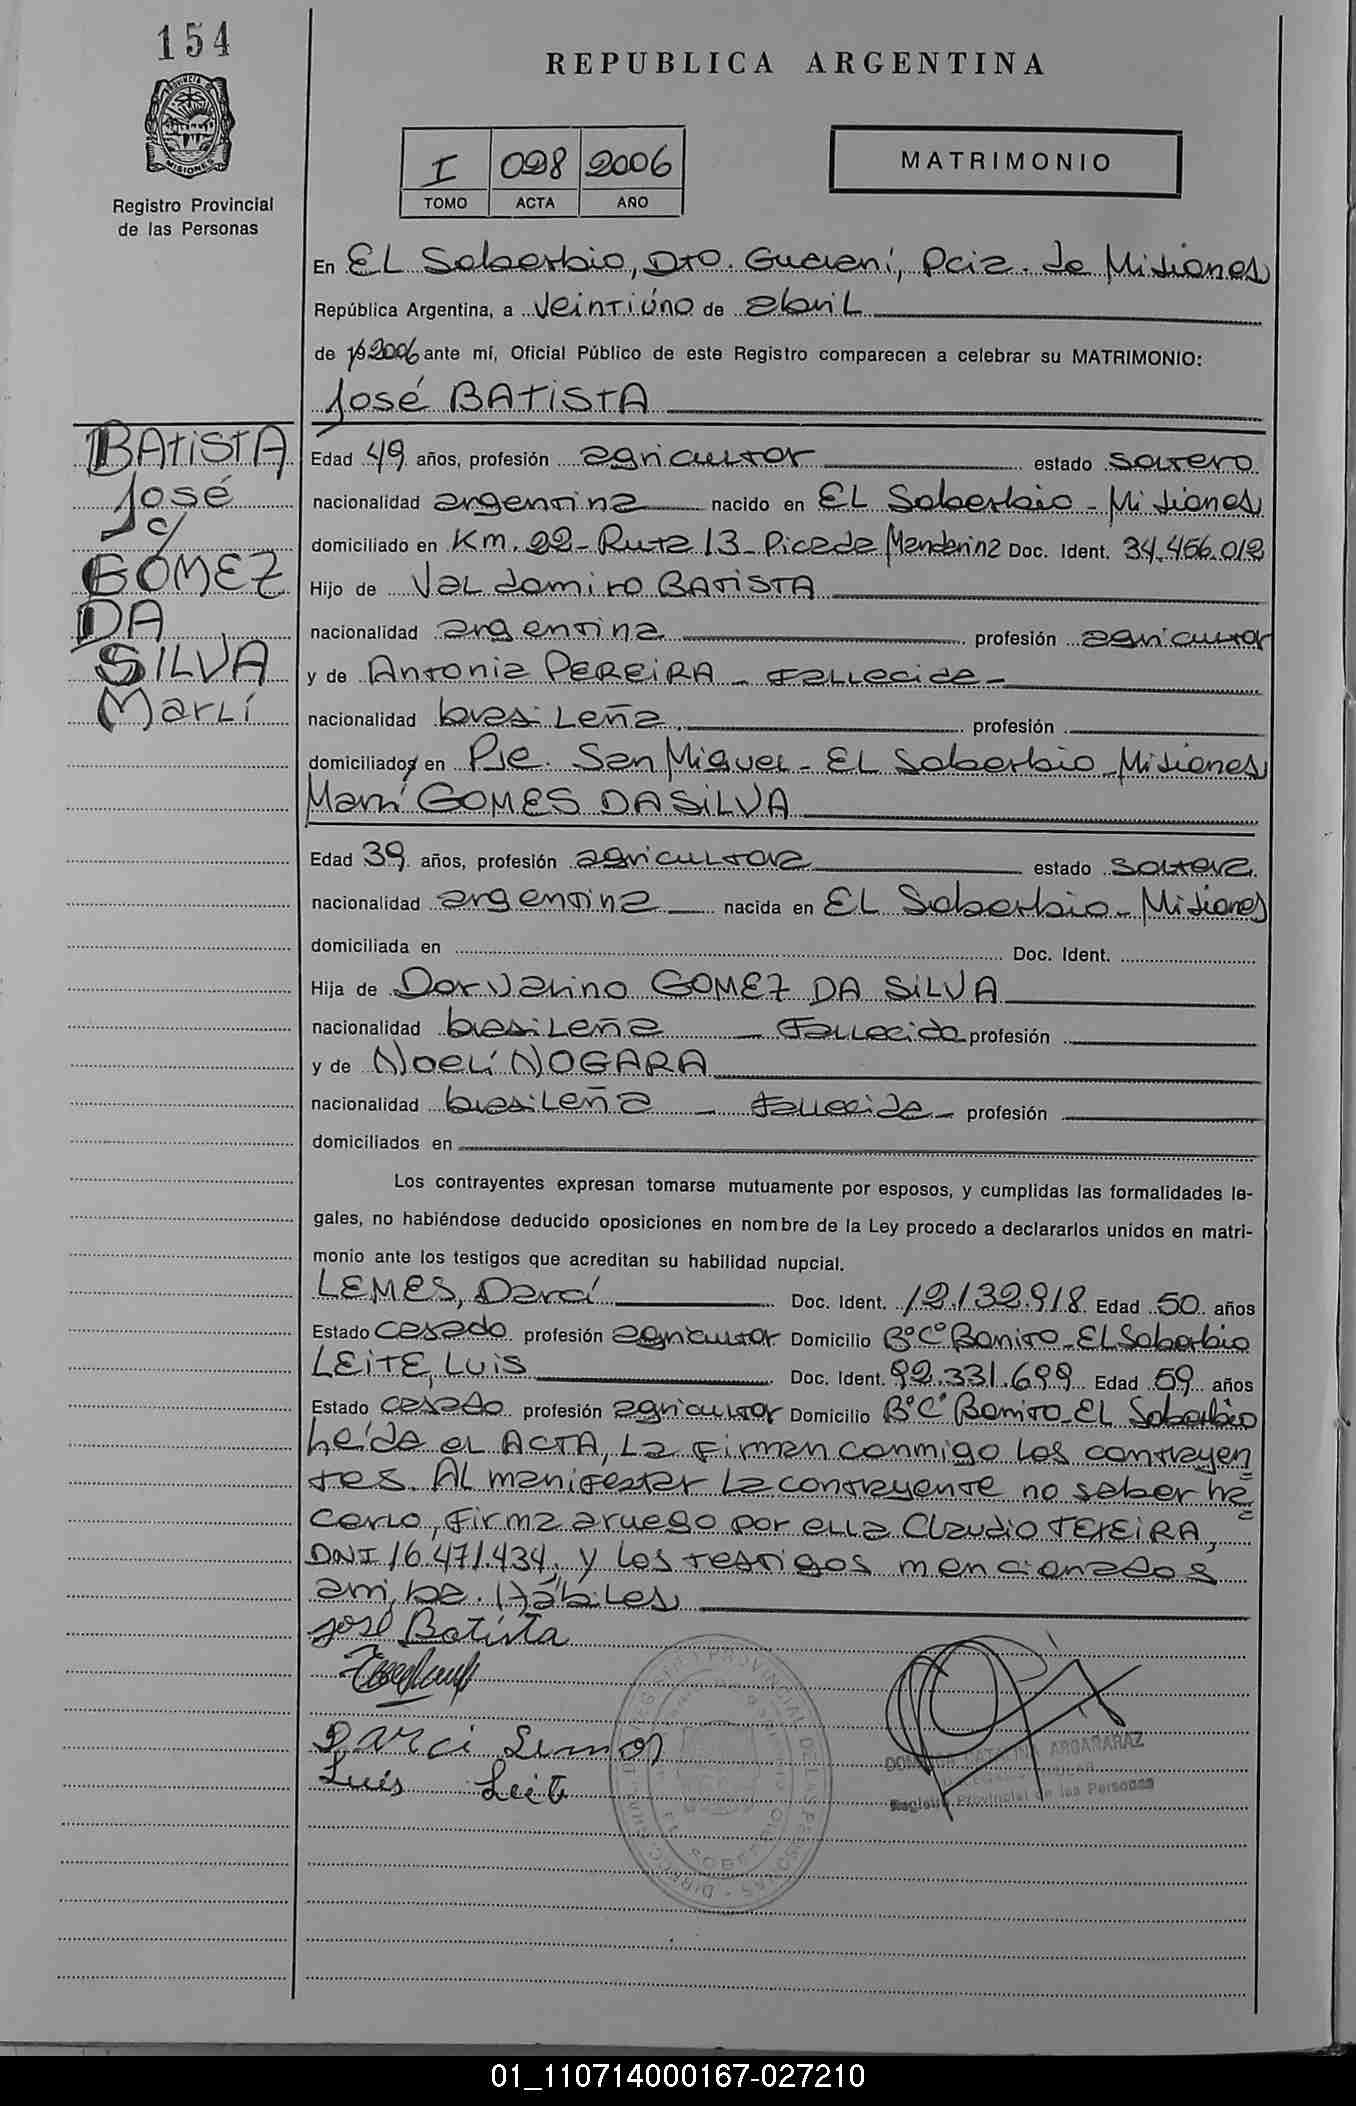 154
PROVINCIA DE
MISIONES
Registro Provincial
de las Personas
REPUBLICA ARGENTINA
I 028 2006
TOMO ACTA AÑO
MATRIMONIO
En EL Soberbio, Dto. Guaraní, Pcia. de Misiones
República Argentina, a veintiúno de abril
de 2006 ante mí, Oficial Público de este Registro comparecen a celebrar su MATRIMONIO:
José BATISTA
BATISTA
José
c/
GOMEZ
DA
SILVA
Marlí
Edad 49 años, profesión agricultor estado soltero
nacionalidad argentina nacido en EL Soberbio - Misiones
domiciliado en Km. 22 - Ruta 13 - Picada Mandarina Doc. Ident. 34.456.012
Hijo de Valdomiro BATISTA
nacionalidad argentina profesión agricultor
y de Antonia PEREIRA - Fallecida -
nacionalidad brasileña profesión
domiciliado en Pje. San Miguel - EL Soberbio - Misiones
Marlí GOMES DA SILVA
Edad 39 años, profesión agricultora estado soltera
nacionalidad argentina nacida en EL Soberbio - Misiones
domiciliada en Doc. Ident.
Hija de Dorvalino GOMEZ DA SILVA
nacionalidad brasileña - Fallecido profesión
y de Noelí NOGARA
nacionalidad brasileña - Fallecida - profesión
domiciliados en
Los contrayentes expresan tomarse mutuamente por esposos, y cumplidas las formalidades le-
gales, no habiéndose deducido oposiciones en nombre de la Ley procedo a declararlos unidos en matri-
monio ante los testigos que acreditan su habilidad nupcial.
LEMES, Darcí Doc. Ident. 12.132.918 Edad 50 años
Estado casado profesión agricultor Domicilio B°C° Bonito - EL Soberbio
LEITE, LUIS Doc. Ident. 92.331.699 Edad 59 años
Estado casado profesión agricultor Domicilio B°C° Bonito - EL Soberbio
Leída el ACTA, La Firman conmigo Los contrayen
tes. AL manifestar La contrayente no saber ha=
cerlo, Firma a ruego por ella Claudio TEXEIRA,
DNI 16.471.434, y Los testigos mencionados
arriba. Hábiles
José Batista
Darci Lemes
Luis Leite
DOMINGA CATALINA ARGAÑARAZ
Registro Provincial de las Personas
01_110714000167-027210